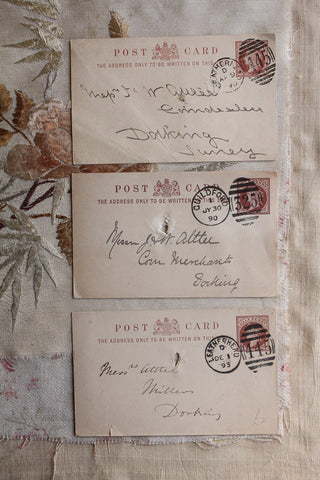 POST CARD
THE ADDRESS ONLY TO BE WRITTEN ON THIS
LEATHERHEAD
90
Messrs J & W Attlee
Dorking
Surrey
POST CARD
THE ADDRESS ONLY TO BE WRITTEN ON THIS
GUILDFORD
JY 30
90
Messrs J & W Attlee
Corn Merchants
Dorking
POST CARD
THE ADDRESS ONLY TO BE WRITTEN ON THIS
LEATHERHEAD
DE 1
93
Messrs Attlee
Millers
Dorking